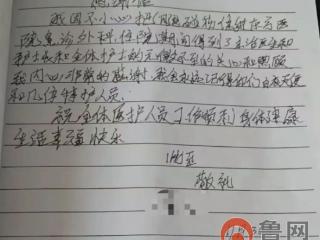 感谢信
我因不小心把
院急诊外科住院期间得到了主治医生和
护士长和全体护士的无微不至的关心和照顾
我内心非常的感谢 我会永远记得你们白衣天使
和 护人员
祝全体医护人员工作顺利身体健康
生活幸福快乐
此至
敬礼
鲁网